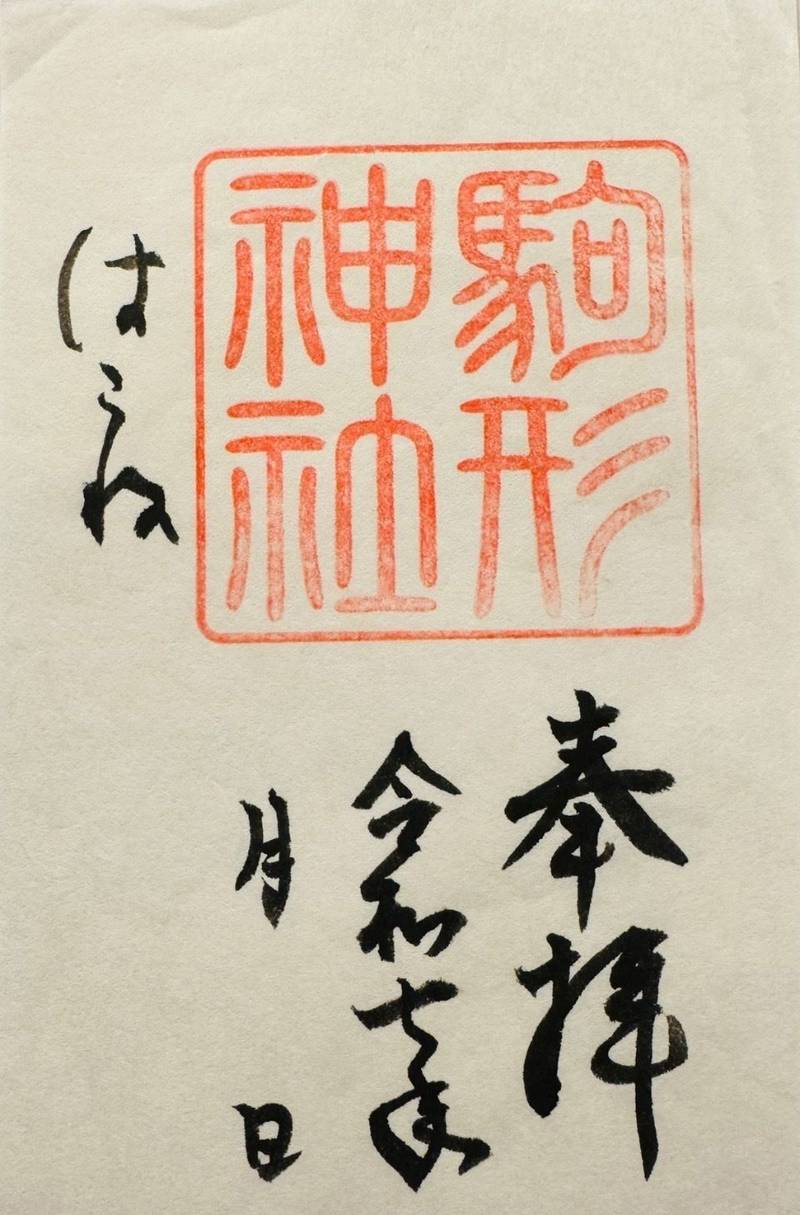 駒形
神社
はこね
奉拝
令和七年
月 日